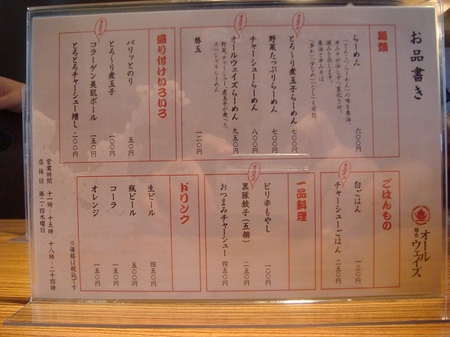 お品書き
麺類
らーめん 六〇〇円
とろ〜り煮玉子らーめん 七〇〇円
野菜たっぷりらーめん 七〇〇円
チャーシューらーめん 八〇〇円
オールウェイズらーめん 九五〇円
野菜、チャーシュー、煮玉子が乗った
スペシャルらーめん
替玉 一二〇円
盛り付けいろいろ
パリッとのり 五〇円
とろ〜り煮玉子 一〇〇円
コラーゲン美肌ボール 一五〇円
とろとろチャーシュー増し 二〇〇円
ごはんもの
白ごはん 一二〇円
チャーシューごはん 二五〇円
一品料理
ピリ辛もやし 一〇〇円
黒豚餃子(五個) 三〇〇円
おつまみチャーシュー 四五〇円
ドリンク
生ビール 四五〇円
瓶ビール 五〇〇円
コーラ 一五〇円
オレンジ 一五〇円
※価格は税込です
営業時間 十一時〜十五時 十八時〜二十四時
店休日 第二・四水曜日
麺者
オールウェイズ